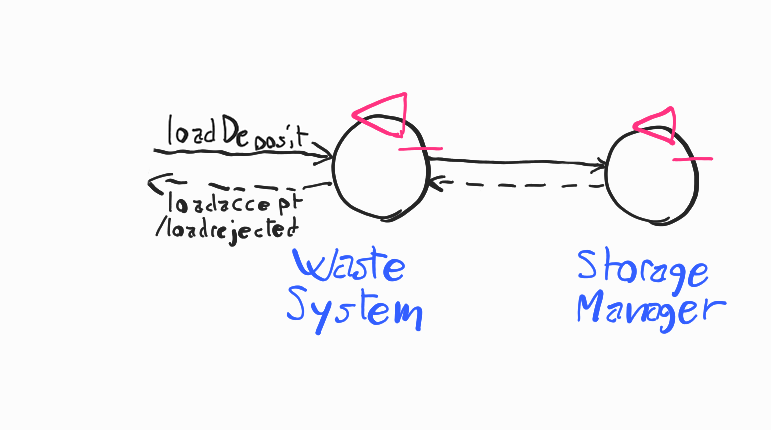 loadDeposit
loadaccept
/loadrejected
Waste
System
Storage
Manager